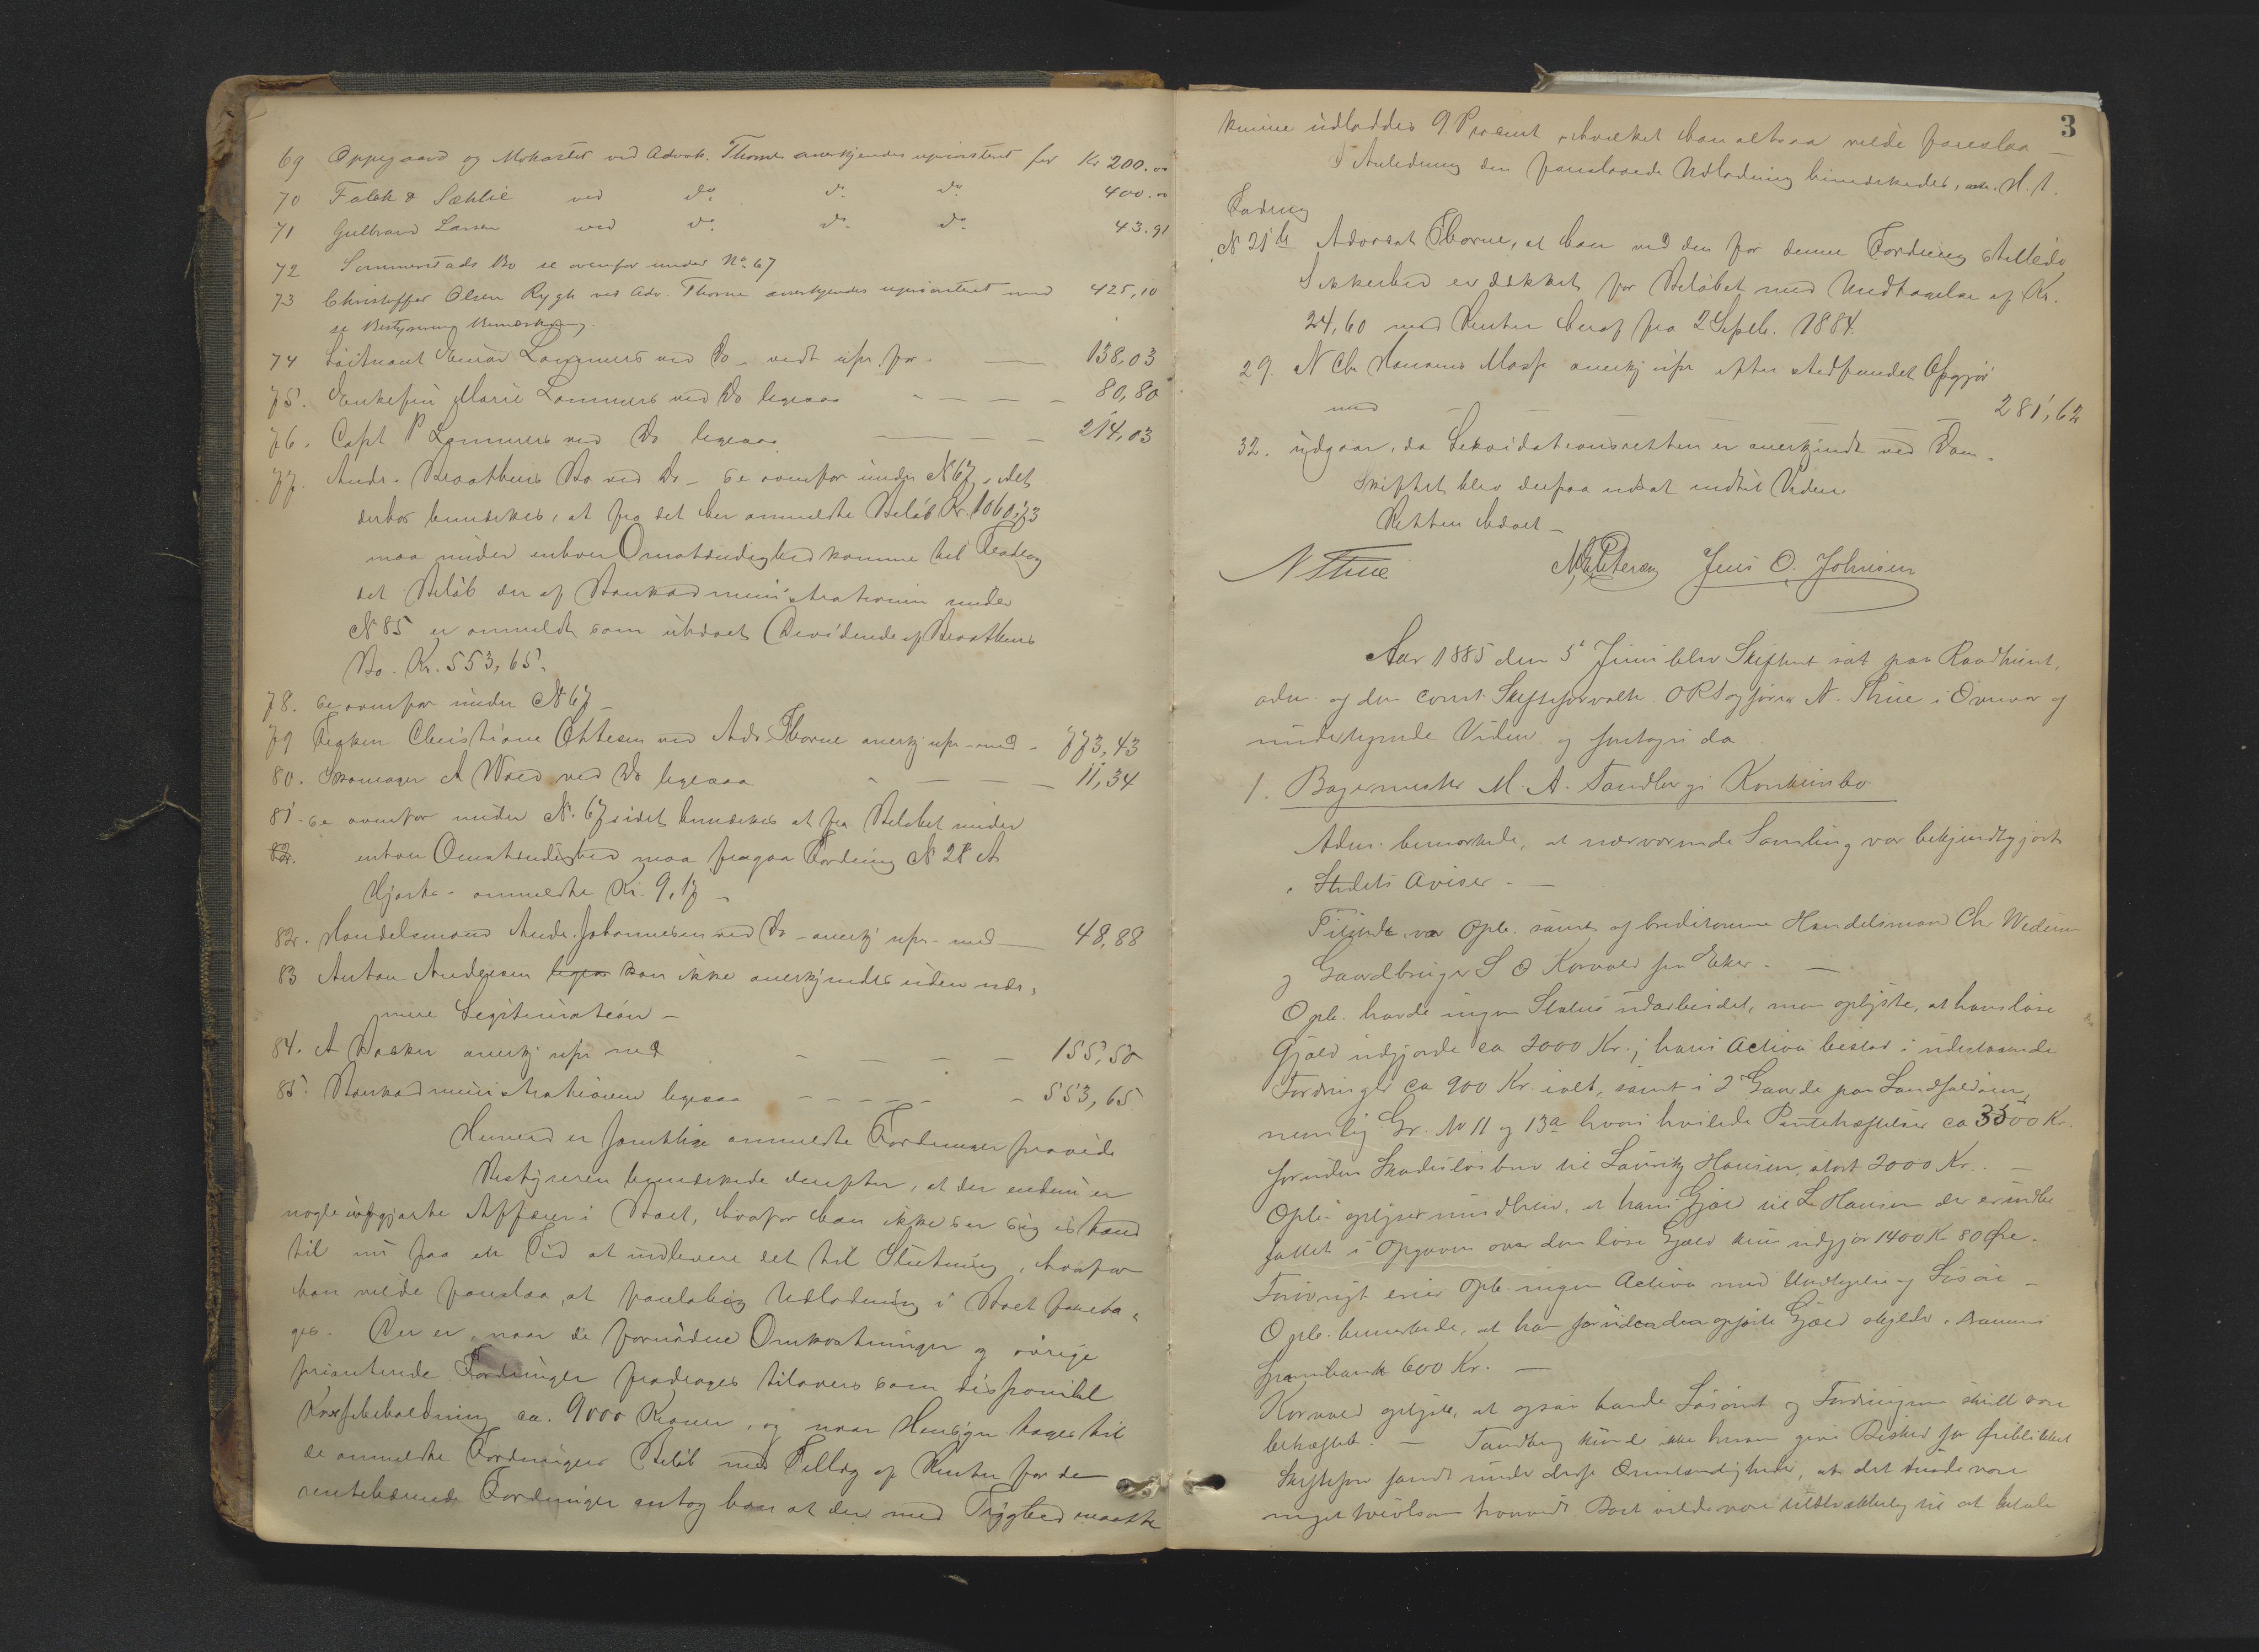 69 Oppegaard og Mokastet ved Advok. Thorne anerkjendes uprioriteret for Kr 200.00
70 Falck & Sæhlie ved do. do. do. 400.00
71 Gulbrand Larsen ved do. do. do. 43.91
72 Sommerstads Bo se ovenfor under No. 67
73 Christoffer Olsen Rygh ved Adv. Thorne anerkjendes uprioriteret med 425,10
se Bestyrerens Bemærkning.
74 Løitnant Einar Lammers ved Do _ vedt upr. for - 138,03
75. Enkefru Marie Lammers ved Do ligesaa - 80,80
76. Capt P Lammers ved Do ligesaa - 214,03
77. Andr. Braathens Bo ved Do - se ovenfor under N 67, idet
derhos bemærkes, at fra det her anmeldte Beløb Kr. 1060,73
maa under enhver Omstændighed komme til Fradrag
det Beløb der af Bankadministrationen under
N 85 er anmeldt som uhævet Dividende af Braathens
Bo. Kr. 553,65.
78. se ovenfor under N 67 _
79 Frøken Christiane Ottesen ved Adv. Thorne anerkj upr. med - 773,43
80. Skomager A Wold ved Do ligesaa - 11,34
81. se ovenfor under N. 67, idet bemærkes at fra Beløbet under
82. enhver Omstændighed maa fragaa Fordring N 28 A
Hjorte - anmeldte Kr. 9,17 _
82. Handelsmand Andr. Johannesen ved Do - anerkj upr. med 48,88
83 Anton Andersen ligesaa kan ikke anerkjendes uden nær=
mere Legitimation _
84. A Backer anerkj upr med - 155,50
85. Bankadministrationen ligesaa - 553,65
Hermed er samtlige anmeldte Fordringer prøvede
Bestyreren bemærkede derefter, at der endnu er
nogle uopgjorte Affærer i Boet, hvorfor han ikke ser sig istand
til nu paa en Tid at indlevere det til Slutning, hvorfor
han vilde foreslaa, at foreløbig Udlodning i Boet foreta=
ges. Der er, naar de fornødne Omkostninger og øvrige
prioriterede Fordringer fradrages tilovers som disponibel
Kassebeholdning ca. 9000 Kroner, og naar Hensyn tages til
de anmeldte Fordringers Beløb med Tillæg af Renter for de
rentebærende Fordringer antog han at der med Tryghed maatte
3
kunne udloddes 9 Procent, hvilket han altsaa vilde foreslaa _
I Anledning den foreslaaede Udlodning bemærkedes, H. t.
Fordring
N 21 b Advocat Thorne, at han ved den for denne Fordring stillede
Sikkerhed er dækket for Beløbet med Undtagelse af Kr.
24,60 med Renter heraf fra 2 Septb. 1884.
29. N Chr Hansens Masse anerkj upr efter stedfundet Opgjør
med - 281,62
32. udgaar, da Likvidationsretten er anerkjendt ved Dom.
Skiftet blev derpaa udsat indtil Videre
Retten hævet _
N Thue Jens O. Johnsen
Aar 1885 den 5 Juni blev Skifteret sat paa Raadhuset,
adm. af den const. Skifteforvalter ORSagfører N. Thue i Overvær af
undertegnede Vidner og foretoges da
1. Bagermester M. A. Tandbergs Konkursbo
Adm. bemærkede, at nærværende Samling var bekjendtgjort
i Stedets Aviser. _
Tilstede var Opb. samt af Creditorerne Handelsmand Chr Wedum
og Gaardbruger S O Korvald fra Eker. _
Opb. havde ingen Status udarbeidet, men oplyste, at hans løse
Gjæld udgjorde ca 2000 Kr.; hans Activa bestod i udestaaende
Fordringer ca 900 Kr. ialt, samt i 2 Gaarde paa Landfaldøen,
nemlig Gr. No 11 og 13a hvori hvilede Pantehæftelser ca 3500 Kr.
foruden Skadesløsbrev til Lauritz Hansen, stort 2000 Kr. _
Opb. oplyser imidlertid, at hans Gjæld til L Hansen der er indbe
fattet i Opgaven over den løse Gjæld kun udgjør 1400 Kr 80 Øre.
Forøvrigt eier Opb. ingen Activa med Undtagelse af Løsøre _
Opb. bemærkede, at han foruden den opførte Gjæld skylder
600 Kr. _
Korvald oplyste, at ogsaa havde Løsøret og Fordringerne skulde være
behæftet. _ Tandberg kunde ikke herom give Besked for Øieblikket
Skifteforv fandt under disse Omstændigheder, at det maatte være
meget tvivlsomt hvorvidt Boet vilde være tilstrækkelig til at betale